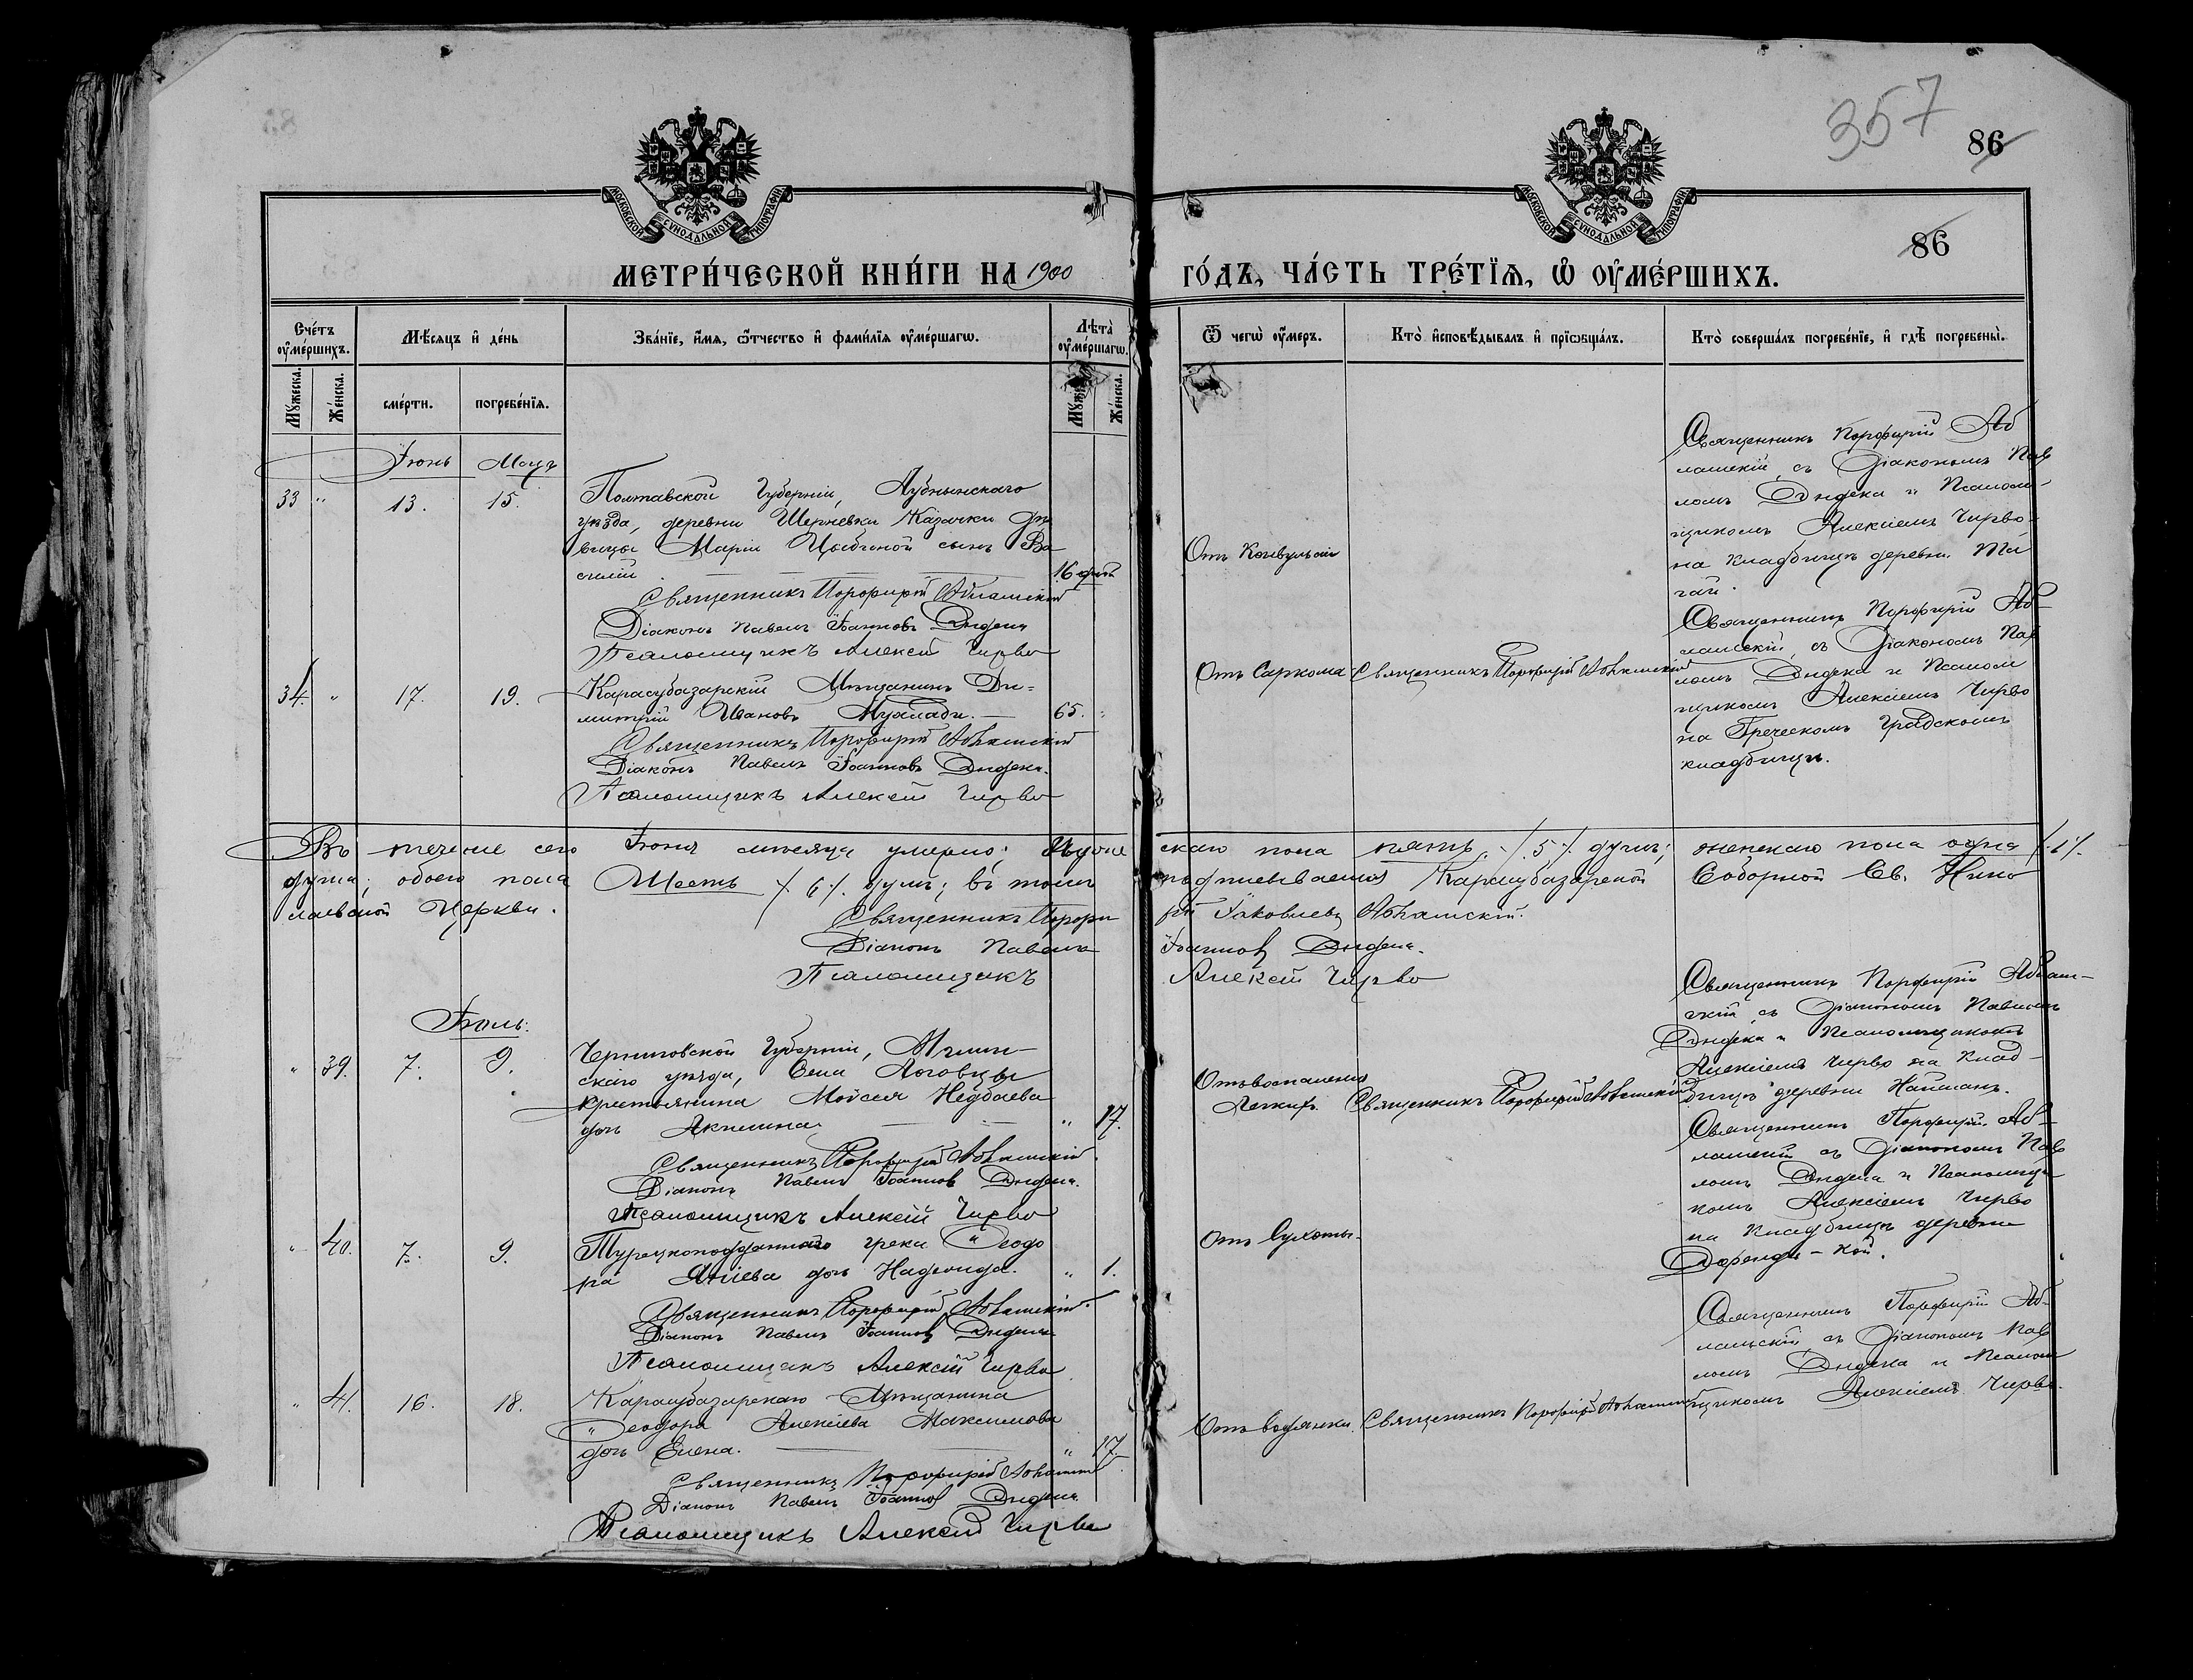 357
86
86
МОСКОВСКОЙ СУНОДАЛЬНОЙ ТИПОГРАФИИ
МОСКОВСКОЙ СУНОДАЛЬНОЙ ТИПОГРАФИИ
МЕТРИ́ЧЕСКОЙ КНИ́ГИ НА 1900
ГО́ДЪ, ЧА́СТЬ ТРЕ́ТЇЯ, Ѡ ОУМЕ́РШИХЪ.
Счетъ оумершихъ.
Мѣсяцъ и день
Званїе, имя, ѿтчество и фамилїя оумершагѡ.
Лѣта оумершагѡ.
Ѿ чегѡ оумеръ.
Кто исповѣдывалъ и прїѡбщалъ.
Кто совершалъ погребенїе, и гдѣ погребены.
Мужеска.
Женска.
смерти.
погребенїя.
Мужеска.
Женска.
Іюнь Мсцъ
33 " 13. 15.
Полтавской Губерніи, Лубнынскаго
уѣзда, деревни Казачки дѣ
вицы Маріи сынъ Ва
силій 16 дней
Священникъ Порфирій Аблашскій
Діаконъ Павелъ Іоанновъ Диденя
Псаломщикъ Алексій Чирво
Отъ Конвульсіи
Священникъ Порфирій Аб
лашскій съ Діакономъ Пав
ломъ Дидена и Псалом-
щикомъ Алексіемъ Чирво
на кладбищѣ деревни
34. " 17. 19.
Карасубазарскій Мѣщанинъ Ди=
митрій Ивановъ 65. "
Священникъ Порфирій Аблашскій
Діаконъ Павелъ Іоанновъ Диденя.
Псаломщикъ Алексій Чирво
Отъ Саркома Священникъ Порфирій Аблашскій
Священникъ Порфирій Аб-
лашскій съ Діакономъ Пав
ломъ Дидена и Псалом
щикомъ Алексіемъ Чирво
на Греческомъ Градскомъ
кладбищѣ.
Въ теченіе сего Іюня мѣсяца умерло: Муже
скаго пола пять ./. 5 ./. душъ; женскаго пола одна ./. 1 ./.
душа; обоего пола Шесть ./. 6 ./. душъ; въ томъ
подписываемся Карасубазарской Соборной Св. Нико
лаевской Церкви.
Священникъ Порфи
рій Іаковлевъ Аблашскій.
Діаконъ Павелъ
Іоанновъ Диденя.
Псаломщикъ
Алексій Чирво
Іюль.
" 39. 7. 9.
Черниговской Губерніи, Мглин-
скаго уѣзда, Села
крестьянина Мойсея Недбаева
дочь Акилина. " 17.
Священникъ Порфирій Аблашскій.
Діаконъ Павелъ Іоанновъ Диденя.
Псаломщикъ Алексій Чирво
Отъ воспаленія
Легкихъ. Священникъ Порфирій Аблашскій
Священникъ Порфирій Аблаш-
скій съ Діакономъ Павломъ
Дидена и Псаломщикомъ
Алексіемъ Чирво на Клад-
бищѣ деревни Найманъ.
" 40. 7. 9.
Турецкоподданнаго грека Ѳеодо
ра дочь Надежда. " 1.
Священникъ Порфирій Аблашскій.
Діаконъ Павелъ Іоанновъ Диденя
Псаломщикъ Алексій Чирво
Отъ Сухоты.
Священникъ Порфирій Аб-
лашскій съ Діакономъ Пав
ломъ Дидена и Псаломщи
комъ Алексіемъ Чирво
на Кладбищѣ деревни
" 41. 16. 18.
Карасубазарскаго Мѣщанина
Ѳеодора Алексіева Максимова
дочь Елена. " 17.
Священникъ Порфирій Аблашскій
Діаконъ Павелъ Іоанновъ Диденя.
Псаломщикъ Алексій Чирво
Отъ водянки. Священникъ Порфирій Аблашскій
Священникъ Порфирій Аб-
лашскій съ Діакономъ Пав
ломъ Дидена и Псалом
щикомъ Алексіемъ Чирво.